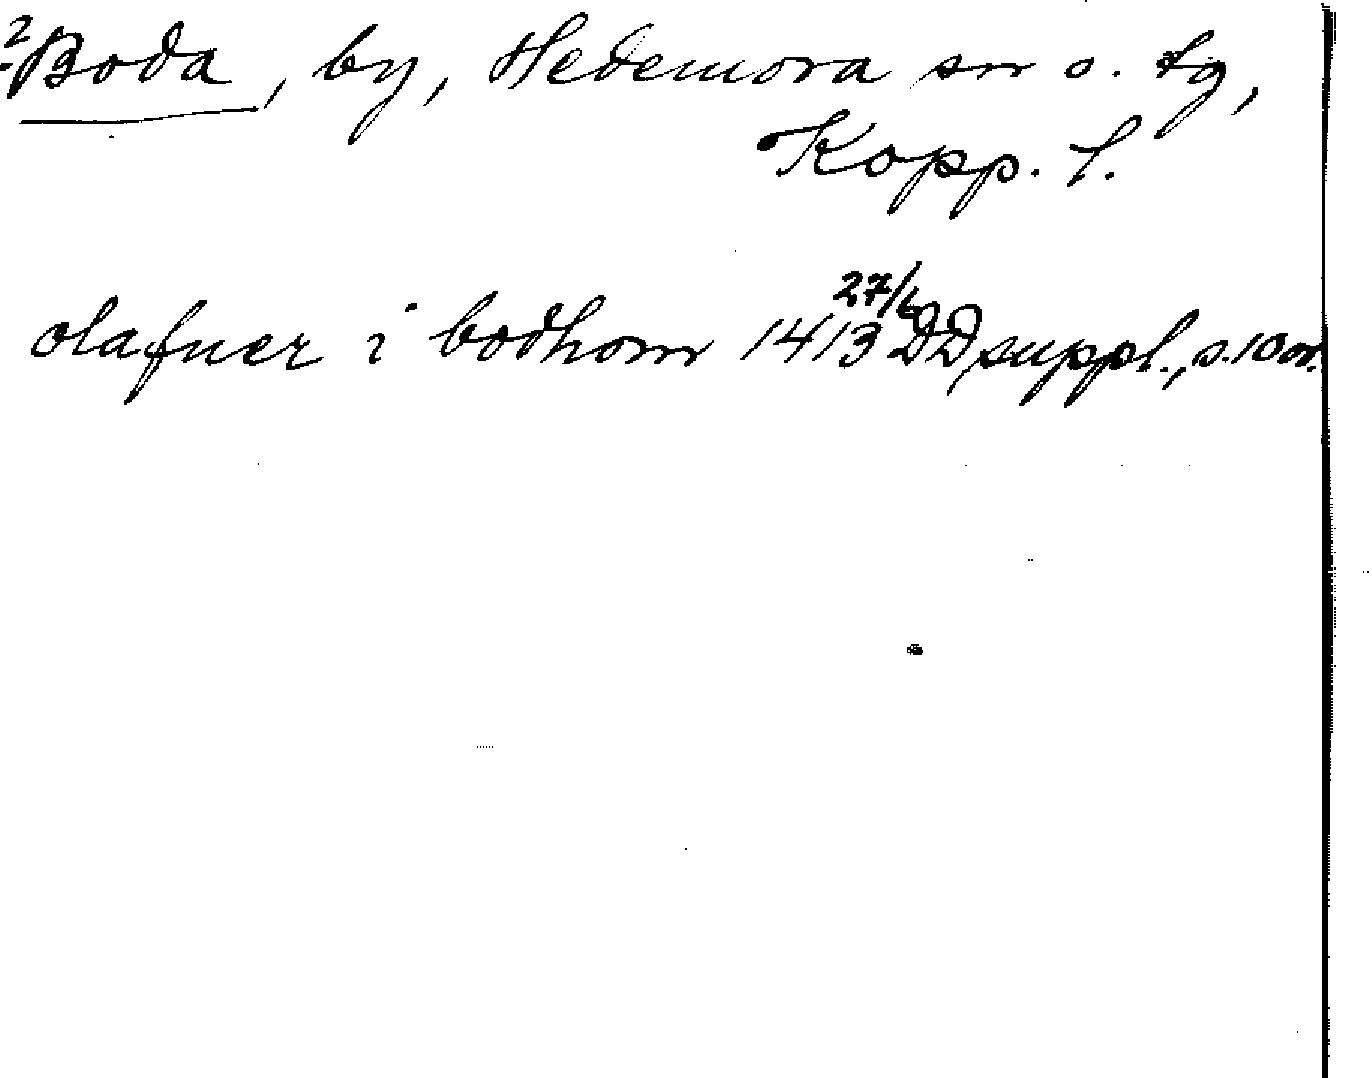 2 Boda, by, Hedemora sn o. tg,
Kopp. l.
olafuer i bodhom 1413 27/6 DD suppl., s. 10 or.